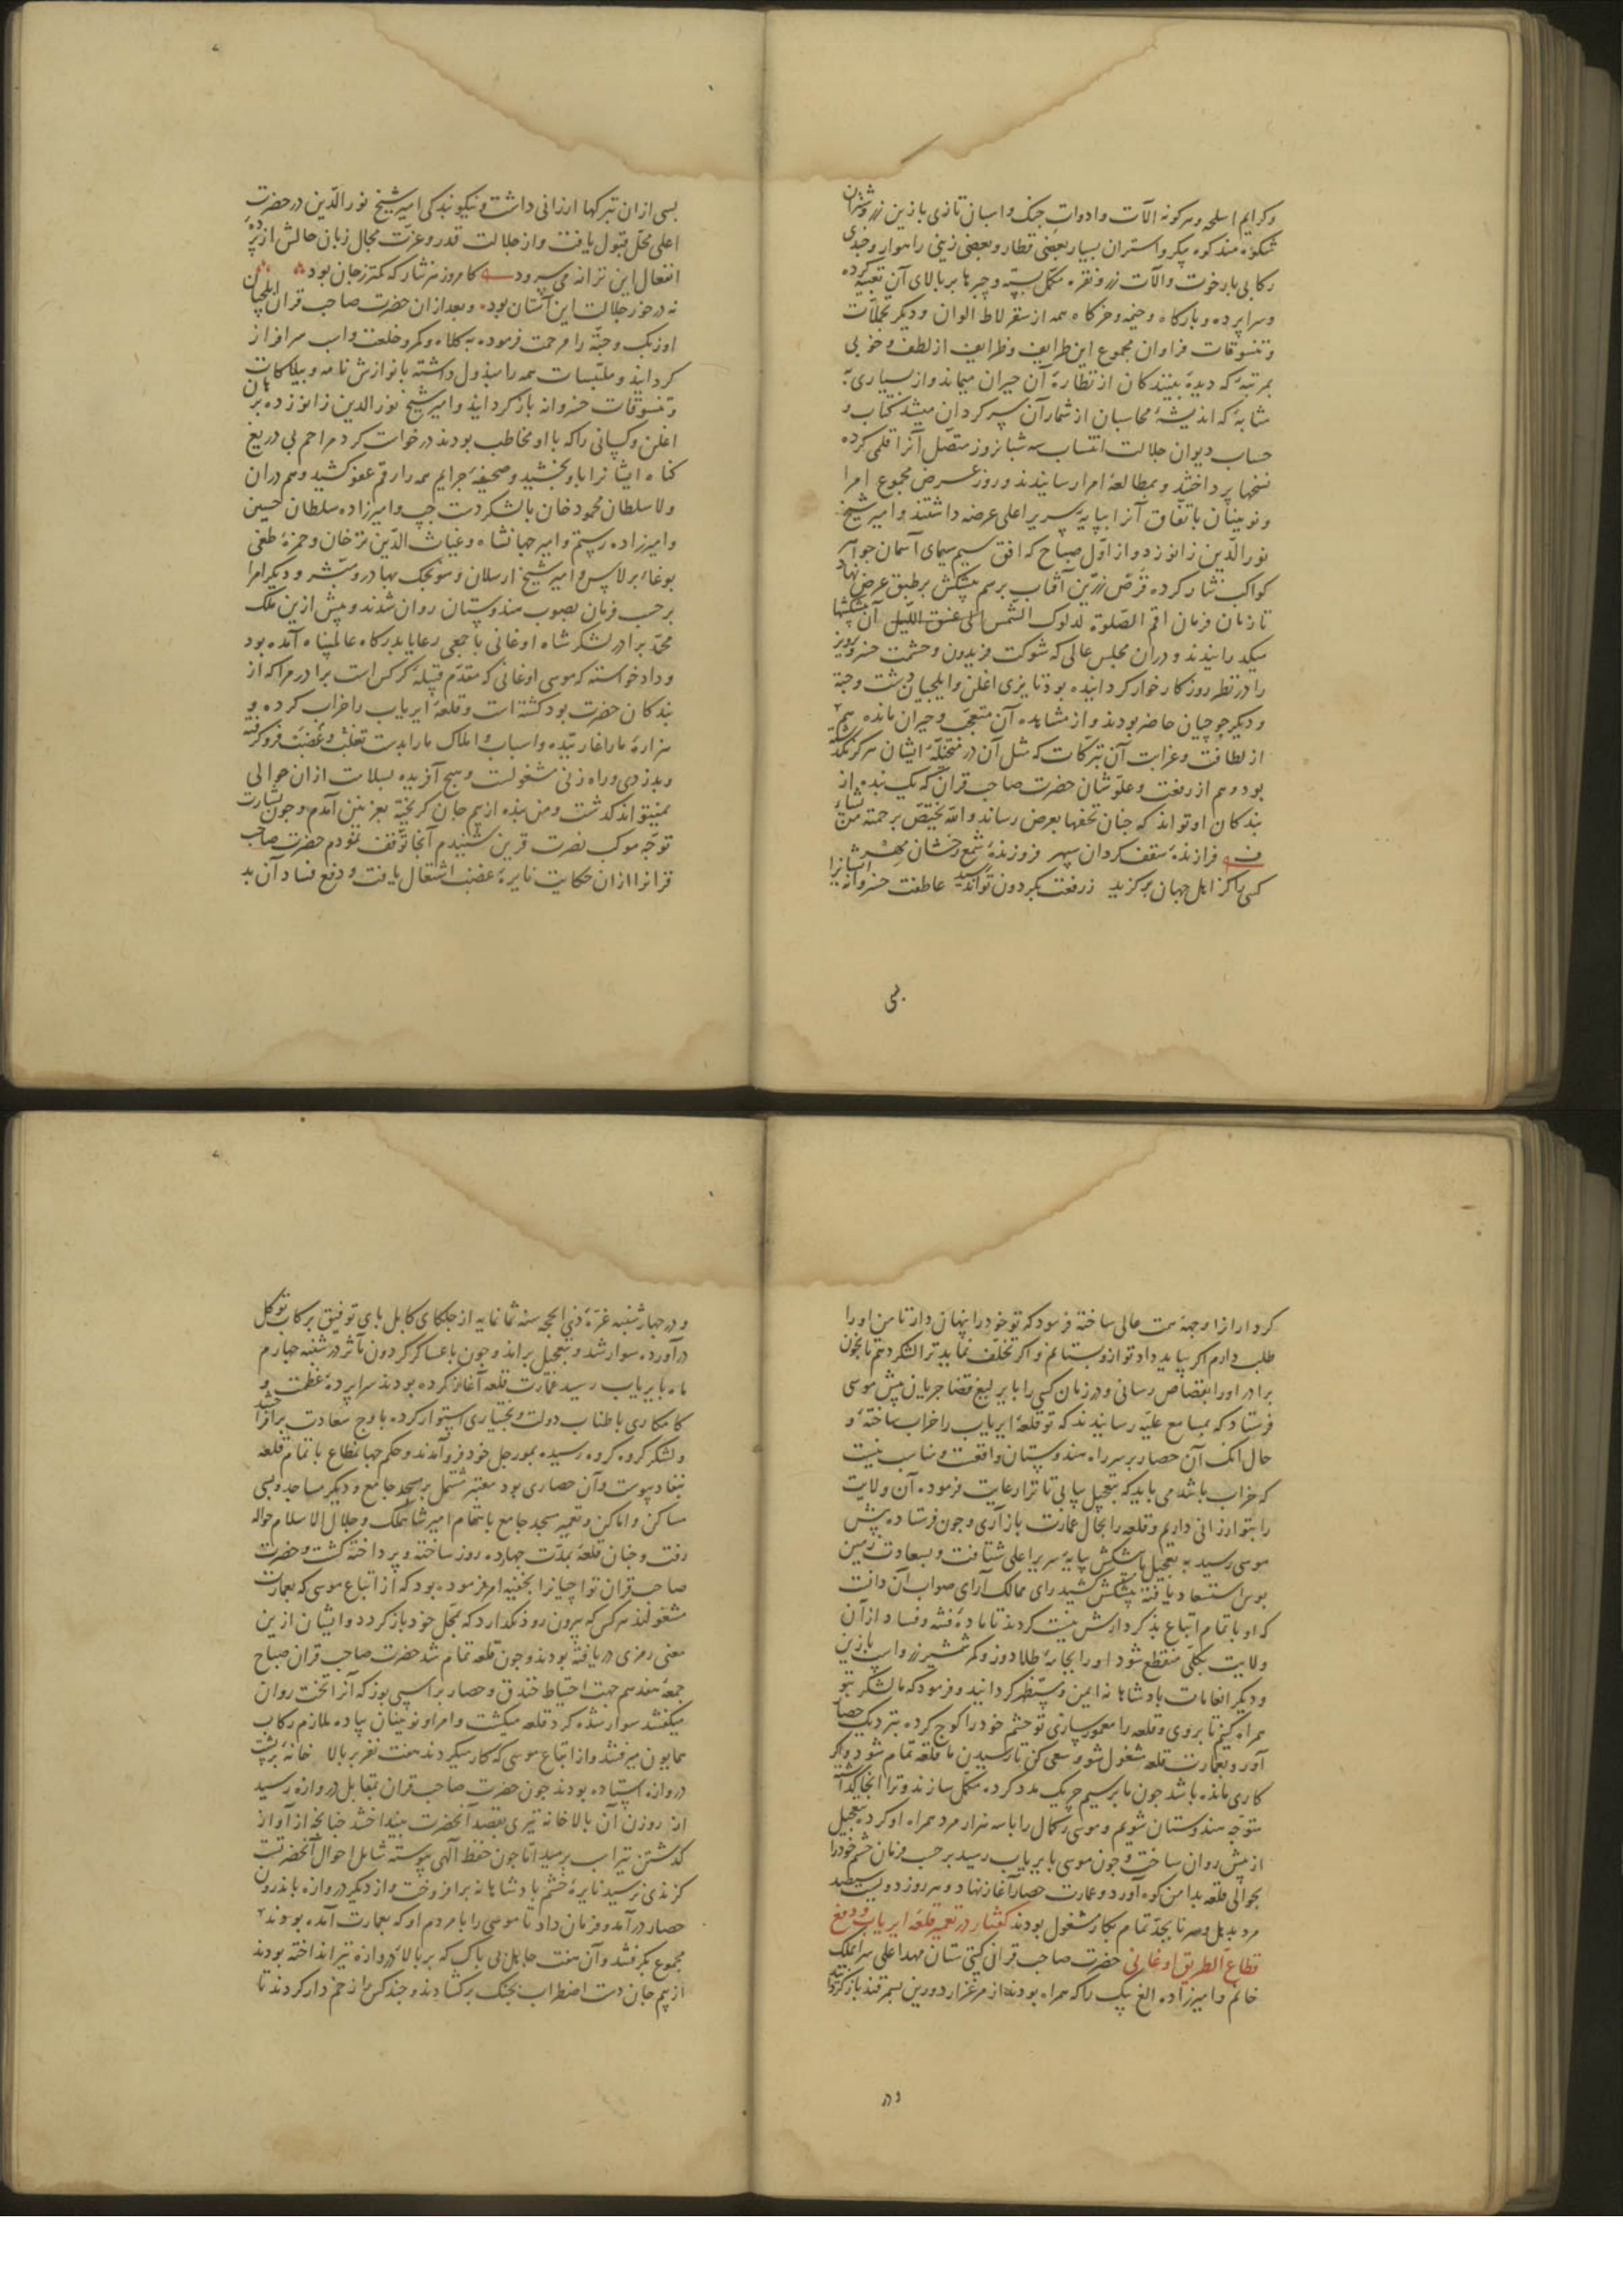 وکرایم اسلحه وهرکونه آلات وادوات جنک واسبان تازی بازین زر وشتران
شکوه مند کوه پیکر واستران بسیار بعضی قطار وبعضی زینی راهوار وچندی
رکابی بارخوت وآلات زر ونقره مکمل بسته وچترها بر بالای آن تعبیه کرده
وسراپرده وبارکاه وخیمه وخرکاه همه از سقرلاط الوان ودیکر تجملات
وتنسوقات فراوان مجموع این طرایف وظرایف از لطف وخوبی
بمرتبهٔ که دیدهٔ بینندکان از نظارهٔ آن حیران میماند واز بسیاری بـ
مثابهٔ که اندیشهٔ محاسبان از شمار آن سرکردان میشد کتاب و
حساب دیوان جلالت انتساب سه شبانروز متصل آنرا قلمی کرده
نسخها پرداختند وبمطالعهٔ امرا رسانیدند وروز عرض مجموع امرا
ونوینان باتفاق آنرا بپایهٔ سریر اعلی عرضه داشتند وامیر شیخ
نورالدین زانو زد واز اول صباح که افق سیم سیمای آسمان جواهر
کواکب نثار کرده قرص زرین آفتاب برسم پیشکش بر طبق عرض نهاد
تا زمان فرمان اقم الصلوة لدلوک الشمس الی غسق اللیل آن پیشکشها
میکذرانیدند ودران مجلس عالی که شوکت فریدون وحشمت خسرو پرویز
را در نظر روزکار خوار کردانیده بود تایزی اغلن وایلچیان دشت وجته
ودیکر جوجیان حاضر بودند واز مشاهده آن متعجب وحیران مانده هم
از لطافت وغرابت آن تبرکات که مثل آن در متخیلهٔ ایشان هرکز نکذشته
بود وهم از رفعت وعلو شان حضرت صاحب قران که یک بنده از
بندکان او تواند که چنان تحفها بعرض رساند والله یختص برحمته من یشاء
فرازندهٔ سقف کردان سپهر فروزندهٔ شمع رخشان مهر
کسی را کز اهل جهان برکزید زرفعت بکردون تواند رسید عاطفت خسروانه ایشانرا
بسی
بسی ازان تبرکها ارزانی داشت ونیکو بندکی امیر شیخ نورالدین در حضرت
اعلی محل قبول یافت واز جلالت قدر وعزت مجال زبان حالش از پردهٔ
انفعال این ترانه می سرود کامروز نثار که کمتر زجان بود
نه درخور جلالت این آستان بود وبعد ازان حضرت صاحب قران ایلچیان
اوزبک وجته را مرحمت فرموده به کلاه وکمر وخلعت واسب سرافراز
کردانید وملتمسات همه را مبذول داشته بانوازش نامه وبیلاکات
وتنسوقات خسروانه باز کردانید وامیر شیخ نورالدین زانو زده برهان
اغلن وکسانی را که با او مخاطب بودند درخواست کرد مراحم بی دریغ
کناه ایشانرا باو بخشید وصحیفهٔ جرایم همه را رقم عفو کشید وهم دران
ولا سلطان محمود خان بالشکر دست چپ وامیرزاده سلطان حسین
وامیرزاده رستم وامیر جهانشاه وغیاث الدین ترخان وحمزهٔ طغی
بوغاء برلاس وامیر شیخ ارسلان وسونجک بهادر ومبشر ودیکر امرا
برحسب فرمان بصوب هندوستان روان شدند وپیش ازین ملک
محمد برادر لشکر شاه اوغانی باجمعی رعایا بدرکاه عالمپناه آمده بود
وداد خواسته که موسی اوغانی که مقدم قبیلهٔ کرکس است برادر مرا که از
بندکان حضرت بود کشته است وقلعهٔ ایریاب را خراب کرده و
هزارهٔ ما را غارتیده واسباب واملاک ما را بدست تغلب وغصب فروکرفته
وبدزدی وراه زنی مشغولست وهیچ آفریده بسلامت ازان حوالی
نمیتواند کذشت ومن بنده از بیم جان کریخته بغزنین آمدم وچون بشارت
توجه موکب نصرت قرین شنیدم آنجا توقف نمودم حضرت صاحب
قرانرا ازان حکایت نایرهٔ غضب اشتعال یافت ودفع فساد آن بد
کردار را وجههٔ همت عالی ساخته فرمود که تو خود را پنهان دار تا من او را
طلب دارم اکر بیاید داد تو ازو بستانم واکر تخلف نماید ترا لشکر دهم تا بخون
برادر او را بقصاص رسانی ودر زمان کسی را با یرلیغ قضا جریان پیش موسی
فرستاد که بمسامع علیه رسانیدند که تو قلعهٔ ایریاب را خراب ساختهٔ و
حال آنک آن حصار بر سر راه هندوستان واقعست ومناسب نیست
که خراب باشد می باید که بتعجیل بیایی تا ترا رعایت فرموده آن ولایت
را بتو ارزانی داریم وقلعه را بحال عمارت باز آری وچون فرستاده پیش
موسی رسید به تعجیل با پیشکش بپایهٔ سریر اعلی شتافت وبسعادت زمین
بوس استسعاد یافته پیشکش کشید رای ممالک آرای صواب آن دانست
که او با تمام اتباع بد کردارش نیست کردند تا مادهٔ فتنه وفساد از آن
ولایت بکلی منقطع شود او را بجامهٔ طلادوز وکمر شمشیر زر واسب بازین
ودیکر انعامات پادشاهانه ایمن ومستظهر کردانید وفرمود که ما لشکر بتو
همراه کنیم تا بروی وقلعه را معمور سازی تو حشم خود را کوچ کرده بنزدیک حصار
آور وبعمارت قلعه مشغول شو وسعی کن تا رسیدن ما قلعه تمام شود واکر
کاری مانده باشد چون ما برسیم چریک مدد کرده مکمل سازند وترا آنجا کذاشته
متوجه هندوستان شویم وموسی رکمال را با سه هزار مرد همراه او کرد بتعجیل
از پیش روان ساخت وچون موسی با ایریاب رسید برحسب فرمان حشم خود را
بحوالی قلعه بدامن کوه آورد وعمارت حصار آغاز نهاد وهر روز دویست سیصد
مرد بدهل وسرنا بجد تمام بکار مشغول بودند کفتار در تعمیر قلعهٔ ایریاب ودفع
قطاع الطریق اوغانی حضرت صاحب قرانی کیتی ستان مهد اعلی سرای ملک
خانم وامیرزاده الغ بیک را که همراه بودند از مرغزار دورین بسمرقند باز کردانید
ود
ودر چهارشنبه غرهٔ ذی الحجه سنه ثمانمایه از جلکای کابل پای توفیق برکاب توکل
درآورده سوار شد وبتعجیل براند وچون با عساکر کردون مآثر در شنبه چهارم
ماه بایریاب رسید عمارت قلعه آغاز کرده بودند سراپردهٔ عظمت و
کامکاری با طناب دولت وبختیاری استوار کرده باوج سعادت برافراختند
ولشکر کروه کروه رسیده بمورجل خود فرود آمدند وحکم جهانمطاع باتمام قلعه
بنفاد پیوست وآن حصاری بود معتبر مشتمل بر مسجد جامع ودیکر مساجد وبسی
مساکن واماکن وتعمیر مسجد جامع باهتمام امیر شاهملک وجلال الاسلام حواله
رفت وچنان قلعه بمدت چهارده روز ساخته وپرداخته کشت وحضرت
صاحب قران تواچیانرا بخفیه امر فرموده بود که از اتباع موسی که بعمارت
مشغولند هرکس که بیرون رود نکذارد که بمحل خود باز کردد وایشان ازین
معنی رمزی دریافته بودند وچون قلعه تمام شد حضرت صاحب قران صباح
جمعه هفدهم جهت احتیاط خندق وحصار براسپی بوز که آنرا تخت روان
میکفتند سوار شده کرد قلعه میکشت وامرا ونوینان پیاده ملازم رکاب
همایون میرفتند واز اتباع موسی که کار میکردند هفت نفر بر بالا خانهٔ بر پشت
دروازه ایستاده بودند چون حضرت صاحب قران بمقابل دروازه رسید
از روزن آن بالا خانه تیری بقصد آنحضرت بینداختند چنانچه از آواز
کذشتن تیر اسب برمید اما چون حفظ آلهی پیوسته شامل احوال آنحضرتست
کزندی نرسید نایرهٔ خشم پادشاهانه برافروخت واز دیکر دروازه باندرون
حصار درآمد وفرمان داد تا موسی را با مردم او که بعمارت آمده بودند
مجموع بکرفتند وآن هفت جاهل بی باک که بر بالاء دروازه تیر انداخته بودند
از بیم جان دست اضطراب بجنک برکشادند وچند کس را زخم دار کردند تا